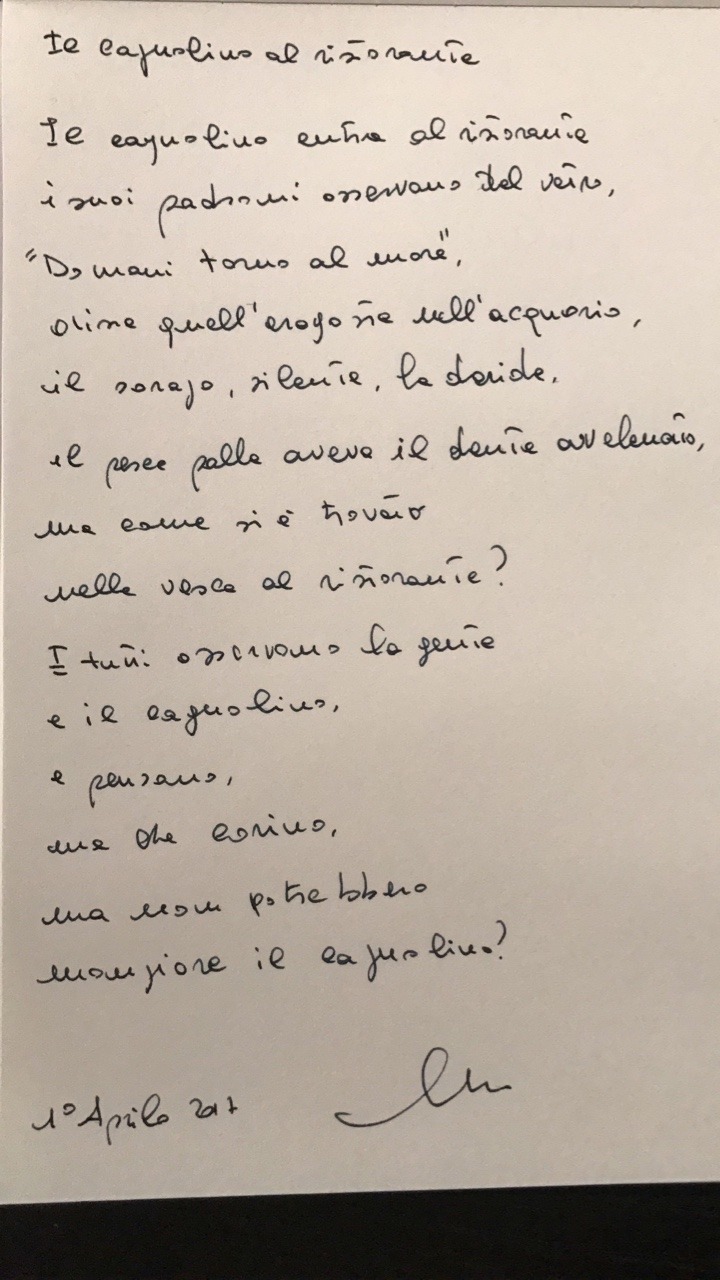 Il cagnolino al ristorante
Il cagnolino entra al ristorante
i suoi padroni osservano dal vetro,
"Domani torno al mare",
disse quell'aragosta nell'acquario,
il sarago, silente, la deride.
il pesce palla aveva il dente avvelenato,
ma come si è trovato
nella vasca al ristorante?
I tutti osservano la gente
e il cagnolino,
e pensano,
ma che carino,
ma non potrebbero
mangiare il cagnolino?
1° Aprile 2017